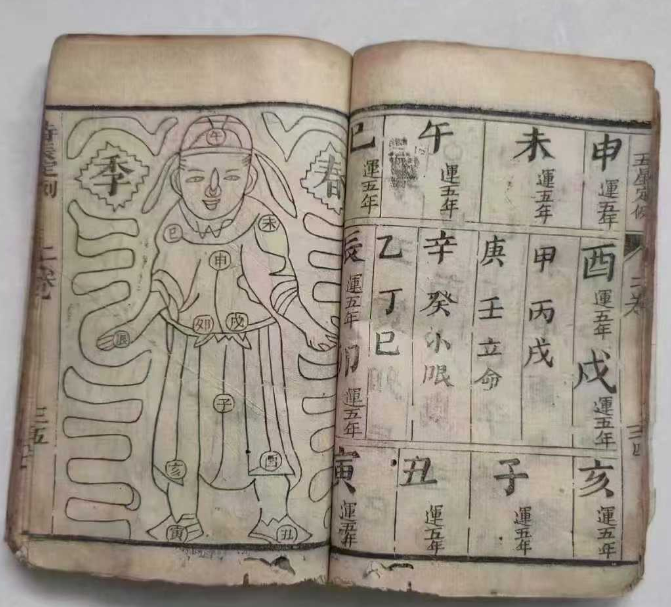 五星定例
二卷
三四
申
運五年
未
運五年
午
運五年
巳
運五年
酉
運五年
戌
運五年
甲丙戌
庚壬立命
辛癸小限
乙丁巳
辰
運五年
卯
運五年
亥
運五年
子
丑
運五年
寅
運五年
春
季
午
巳
未
申
卯
戌
辰
子
亥
酉
寅
丑
二卷
三五